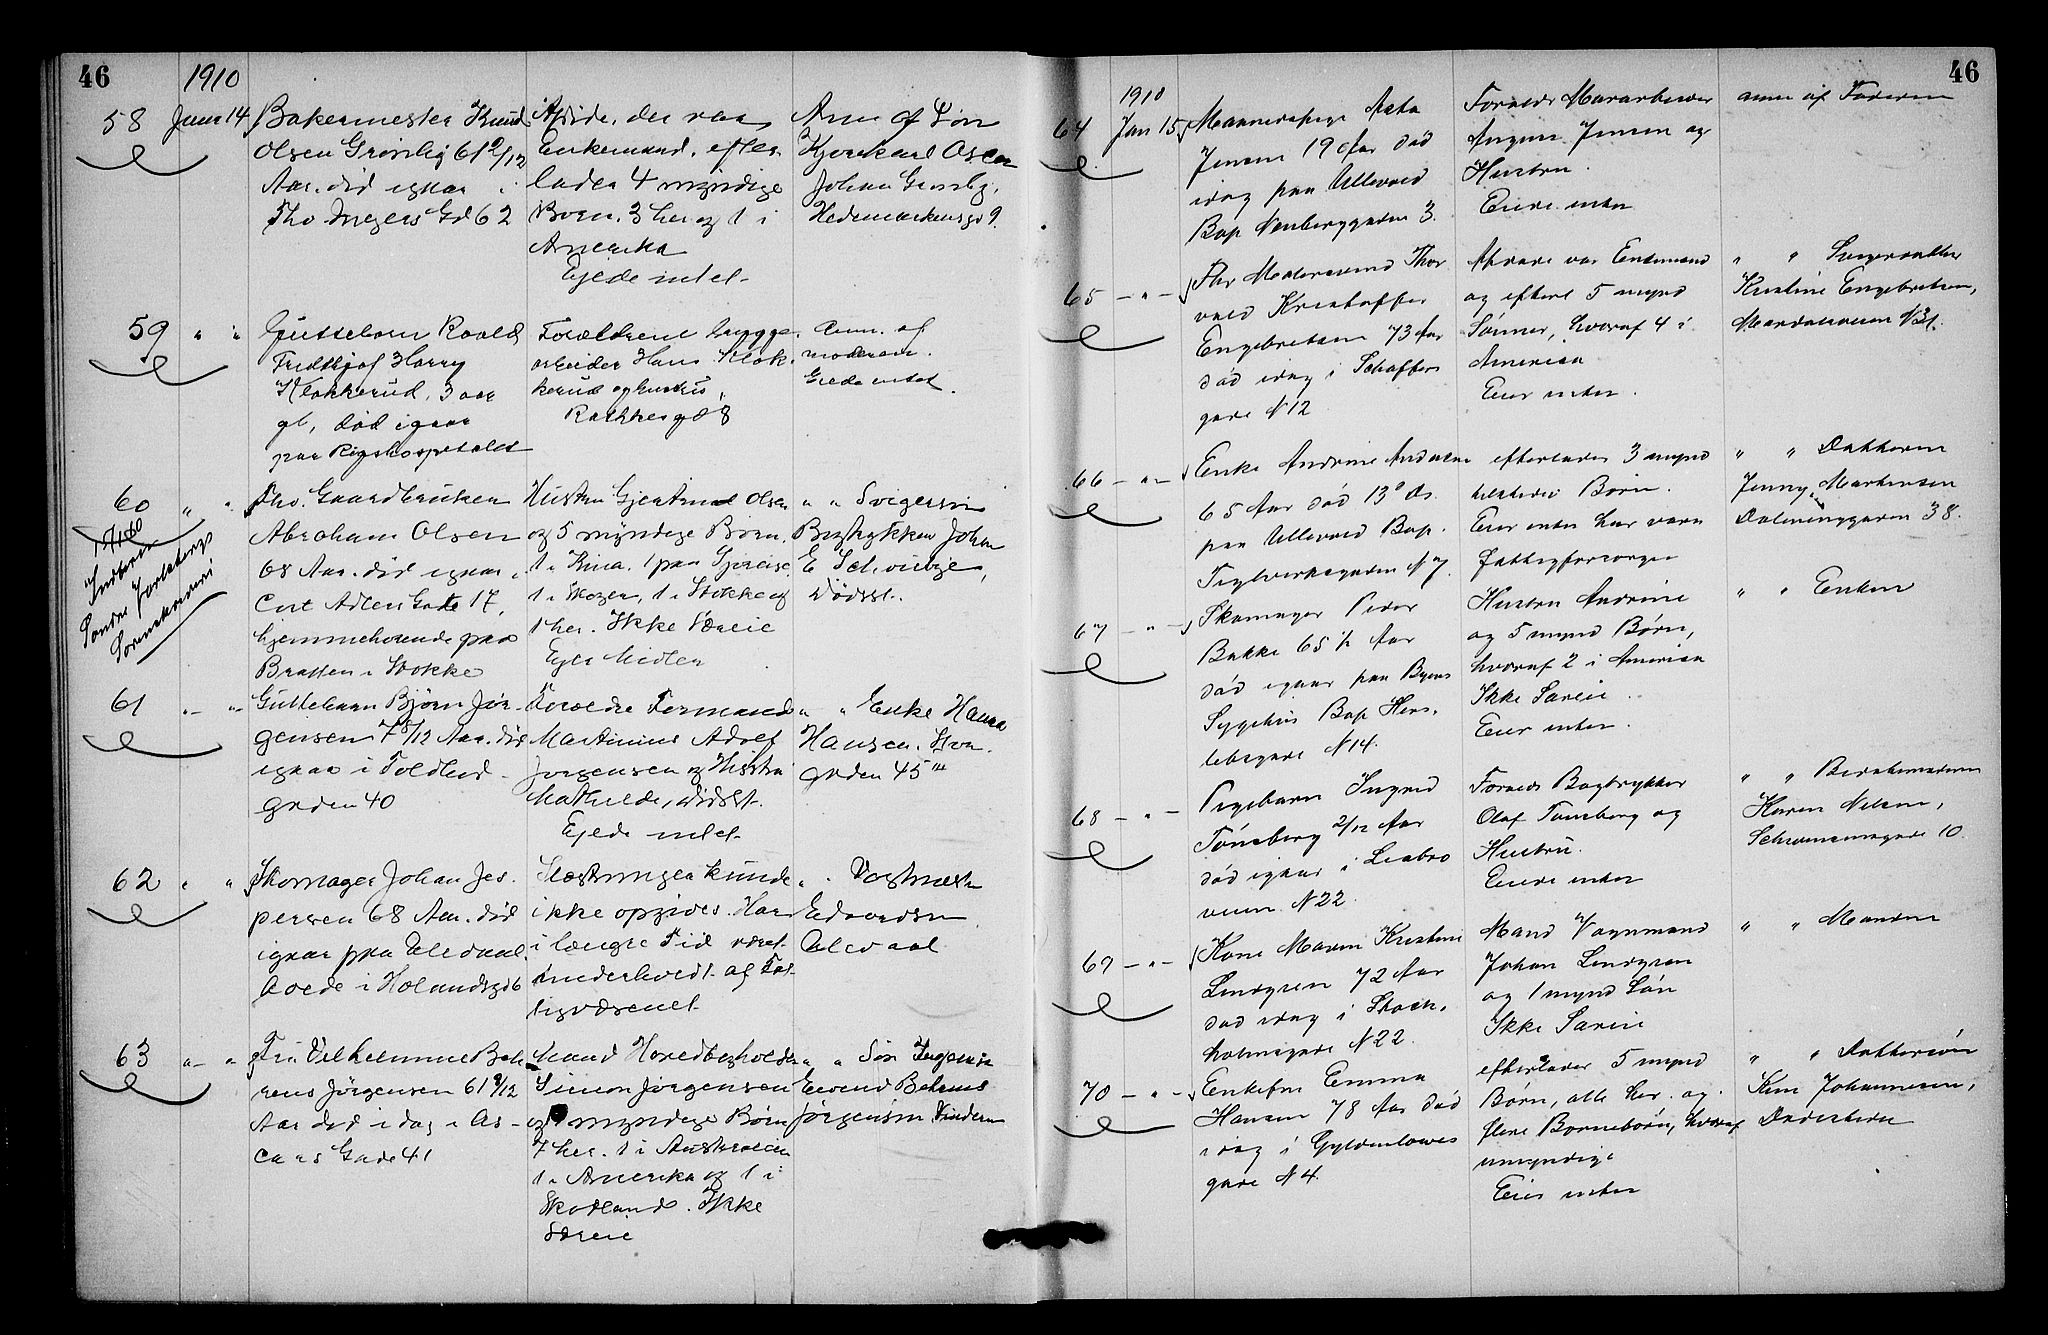 46
1910
58 Janr 14 Bakermester Knud
Olsen Grønlig 61 9/12
Aar. død igaar i
Tho. Megers Gd 62
Afdøde, der var
Enkemand, efter-
lader 4 myndige
Børn. 3 her og 1 i
Amerika
Ejede intet
Anm. af Søn
Kjørekarl Oscar
Johan Grønlig,
Hedemarkensgd 9.
59 " " Guttebarn Roald
Fridthjof Harry
Klokkerud, 3 aar
gl, død igaar
paa Rigshospitalet
Forældrene brygge-
arbeider Hans Klok-
kerud og hustru,
Rathkesgd 8
Anm. af
moderen.
Eiede intet.
60 " " Fhv. Gaardbruker
Abraham Olsen
68 Aar. død igaar i
Curt Adlers Gade 17,
hjemmehørende paa
Bratten i Stokke
Hustru Gjertrud Olsen
og 5 myndige Børn.
1 i Kina, 1 paa Sjøreise
1 i Skozen, 1 i Stokke og
1 her. Ikke Særeie
Ejer Midler
" " Svigersøn
Bogtrykker Johan
E Schwi
Dødsst.
17/1 10
Indberet
Søndre Jarlsbergs
Sorenskriveri
61 " " Guttebarn Bjørn Jør-
gensen 7 8/12 Aar. død
igaar i Toldbod-
gaden 40
Foreldre Formand
Martinius Adolf
Jorgensen og Hustru
Mathilde, Dødsst.
Ejede intet
" " Enke Hanna
Hansen, Stor-
gaden 45
62 " " Skomager Johan Jes-
persen 68 Aar. død
igaar paa Ullevaal,
boede i Hølandsgd 6
Slægtninger kunde
ikke opgives. Har
i længre Tid været
underholdt af Fat-
tigvæsenet
" " Vagtmester
Edvardsen
Ullevaal
63 " " Fru Vilhelmine Beh-
rens Jørgensen 61 9/12
Aar død i dag i Os-
cars Gade 41
Mand Hovedbogholder
Simon Jørgensen
og myndige Børn
7 her. 1 i Australien
1 i Amerika og 1 i
Skotland. Ikke
Særeie
" " Søn Ingeniør
Eivind Behrens
Jørgensen Vinderen
46
1910
64 Jan 15 Mannerspige Asta
Jensen 19 Aar død
idag paa Ullevaal
Bop Nonberggaden 3.
Foreldr Murarbeider
August Jensen og
Hustru.
Eiede inten
anm af Faderen
65 - " - Fhv Matersvend Thor
vald Kristoffer
Engebretsen 73 Aar
død idag i Schaffers
gade N 12
Afdøde var Enkemand
og efterl 5 mynd
Sønner, hvoraf 4 i
America
Eier inten.
" " Svigerdatter
Kristine Engebretsen,
66 - " - Enke Andrine Andersen
65 Aar død 13' ds.
paa Ullevaal Bop.
Teglverksgaden N 7.
efterlader 3 mynd
Børn.
Eier inten har vært
fattigforsørget
" " Datteren
Jenny Martinsen
Dælenenggaden 38.
67 - " - Skomager Peder
Bakke 65 ½ Aar
død igaar paa Byens
Sygehus Bop Hers-
lebsgade N 14.
Hustru Andrine
og 5 mynd Børn,
hvoraf 2 i America
Ikke Særeie
Eier inten.
" " Enken
68 - " - Pigebarn Ingrid
Tønsberg 2/12 Aar
død igaar i Liabro
veien N 22.
Foreldr Bogtrykker
Olaf Tønsberg og
Hustru.
Eiede inten
" " Bedstemoderen
Karen Nilsen,
Schweensensgade 10.
69 - " - Kone Maren Kristine
Lindgren 72 Aar
død idag i Stock-
holmsgade N 22.
Mand Vognmand
Johan Lindgren
og 1 mynd Søn
Ikke Særeie
" " Manden
70 - " - Enkefru Emma
Hansen 78 Aar død
idag i Gyldenløves
gade N 4.
efterlader 5 mynd
Børn, alle her. og
flere Børnebørn, hvoraf
umyndige
Eier inten
" " Dattersøn
Johannesen,